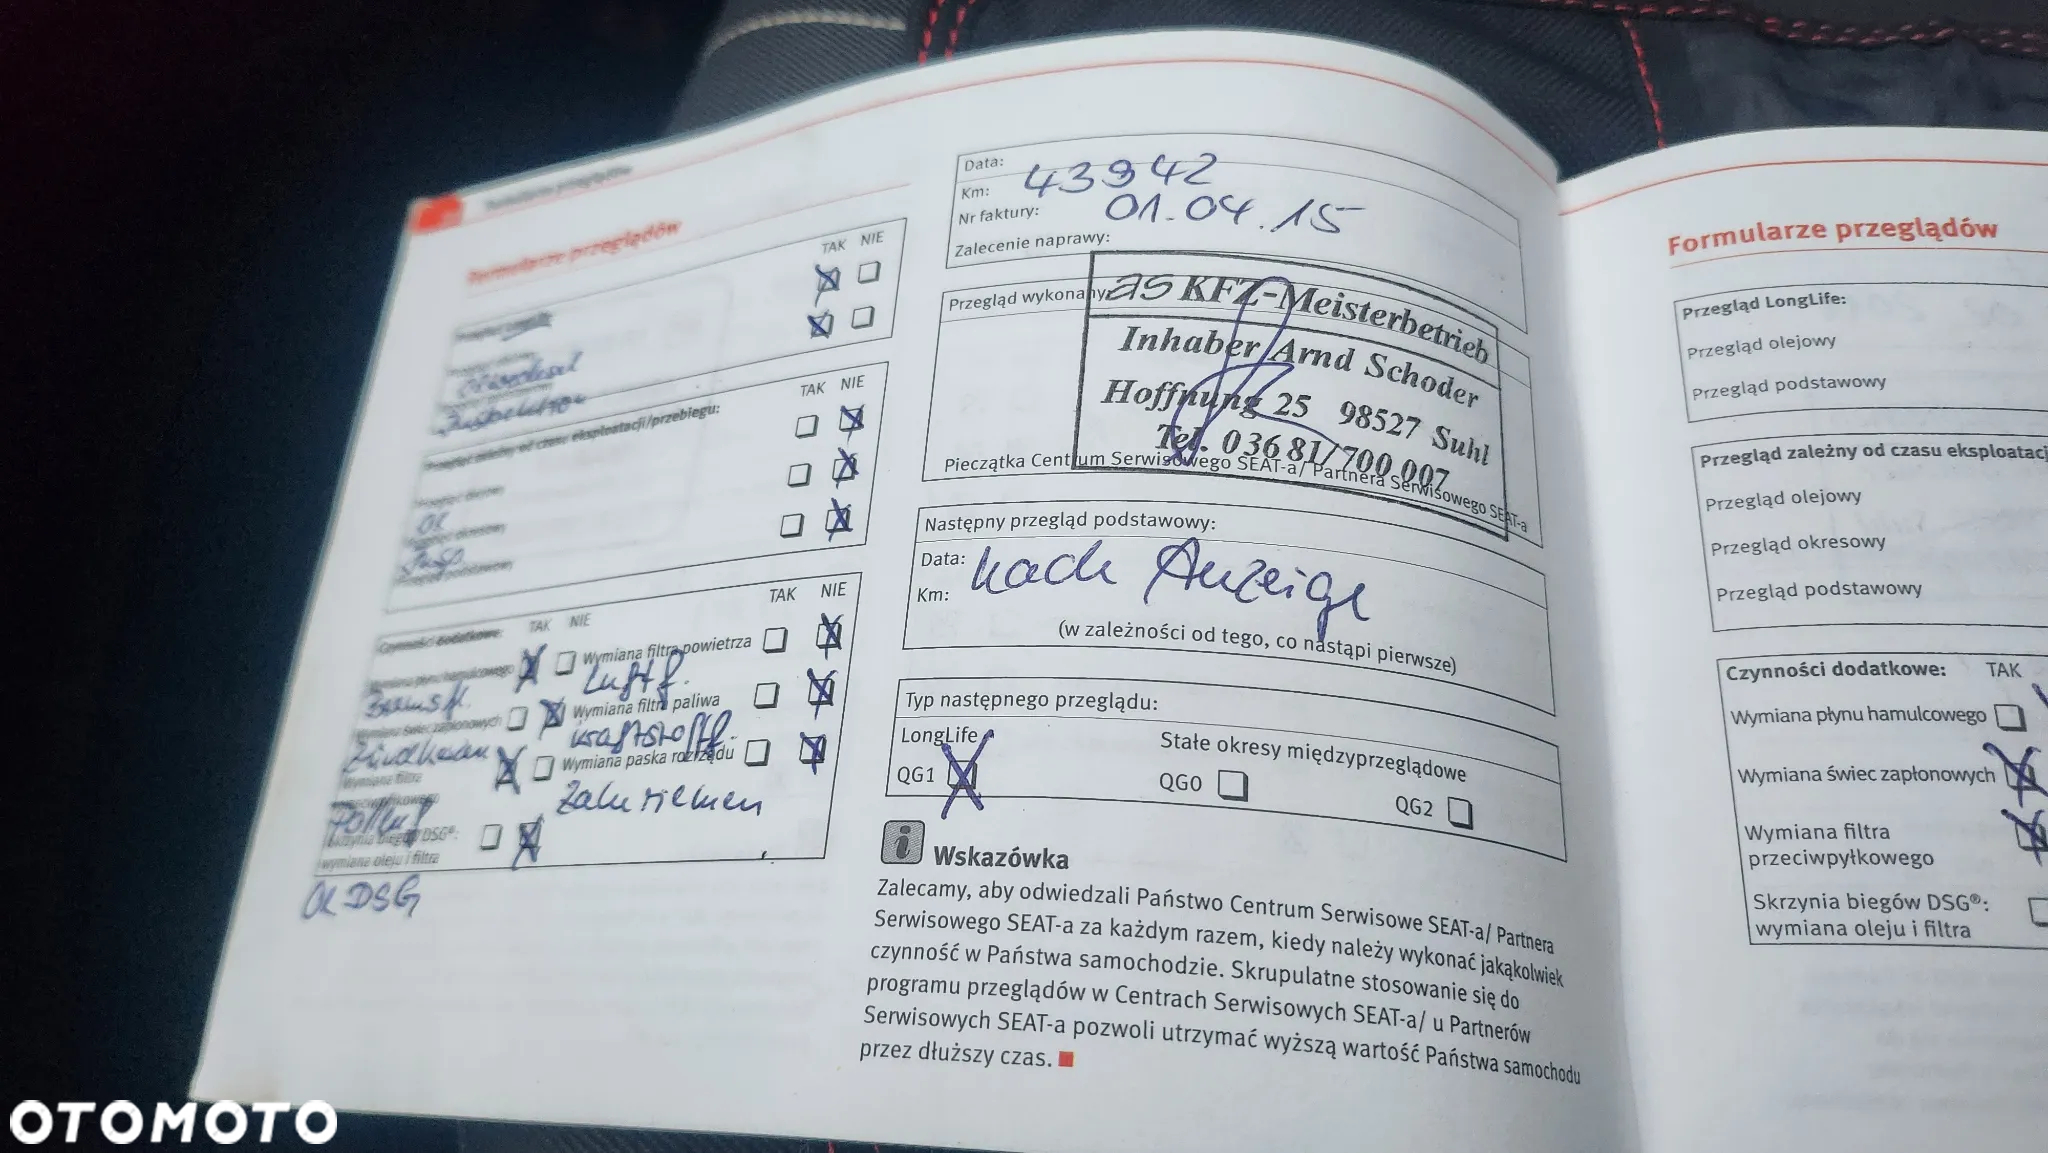 Formularze przeglądów
TAK NIE
Ölwechsel
Inspektion
Przegląd zależny od czasu eksploatacji/przebiegu:
TAK NIE
Öl
Insp
Czynności dodatkowe:
TAK NIE
TAK NIE
Wymiana płynu hamulcowego
Wymiana filtra powietrza
Bremsfl.
Luftf.
Wymiana świec zapłonowych
Wymiana filtra paliwa
Zündkerzen
Kraftstofff.
Wymiana filtra
przeciwpyłkowego
Wymiana paska rozrządu
Pollenf
Zahnriemen
Skrzynia biegów DSG®:
wymiana oleju i filtra
Öl DSG
Data:
Km: 43942
Nr faktury: 01.04.15
Zalecenie naprawy:
Przegląd wykonany
as KFZ-Meisterbetrieb
Inhaber Arnd Schoder
Hoffnung 25 98527 Suhl
Tel. 03681/700 007
Pieczątka Centrum Serwisowego SEAT-a/ Partnera Serwisowego SEAT-a
Następny przegląd podstawowy:
Data: nach Anzeige
Km:
(w zależności od tego, co nastąpi pierwsze)
Typ następnego przeglądu:
LongLife
Stałe okresy międzyprzeglądowe
QG1
QG0
QG2
i Wskazówka
Zalecamy, aby odwiedzali Państwo Centrum Serwisowe SEAT-a/ Partnera
Serwisowego SEAT-a za każdym razem, kiedy należy wykonać jakąkolwiek
czynność w Państwa samochodzie. Skrupulatne stosowanie się do
programu przeglądów w Centrach Serwisowych SEAT-a/ u Partnerów
Serwisowych SEAT-a pozwoli utrzymać wyższą wartość Państwa samochodu
przez dłuższy czas.
Formularze przeglądów
Przegląd LongLife:
Przegląd olejowy
Przegląd podstawowy
Przegląd zależny od czasu eksploatacj
Przegląd olejowy
Przegląd okresowy
Przegląd podstawowy
Czynności dodatkowe: TAK
Wymiana płynu hamulcowego
Wymiana świec zapłonowych
Wymiana filtra
przeciwpyłkowego
Skrzynia biegów DSG®:
wymiana oleju i filtra
OTOMOTO